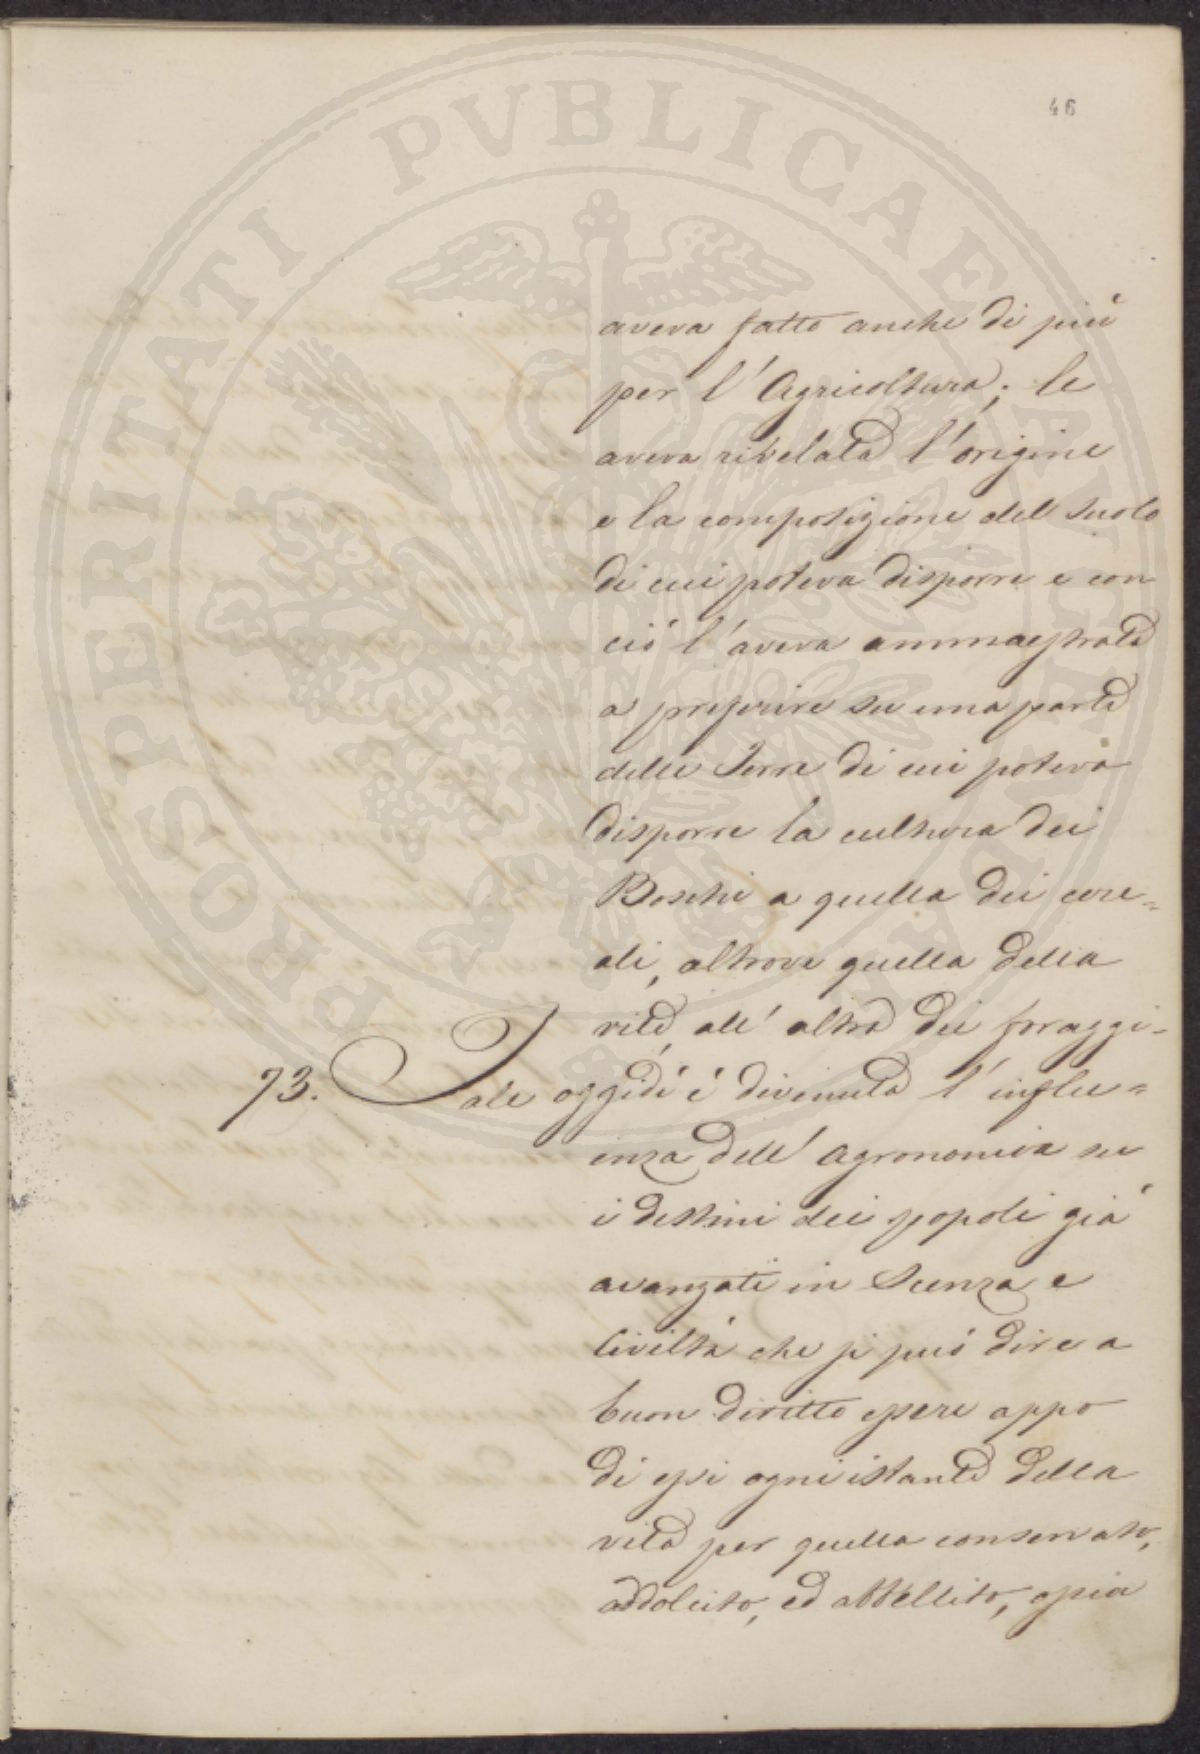 46
PROSPERITATI PVBLICAE AVGENDAE
avera fatto anche di piú
per l'Agricoltura; le
aveva rivelata l'origine
e la composizione del suolo
di cui poteva disporre e con
ció l'aveva ammaestrata
a preferire su una parte
delle Terre di cui poteva
disporre la cultura dei
Boschi a quella dei cere=
ali, altrove quella della
vite, all'altra dei foraggi.
73. Tale oggidí é divenuta l'influ=
enza dell'Agronomia su
i destini dei popoli giá
avanzati in Scienza e
Civiltá che si puó dire a
buon diritto essere appo
di essi ogni istante della
vita per quella conservato,
addolcito, ed abbellito, ossia